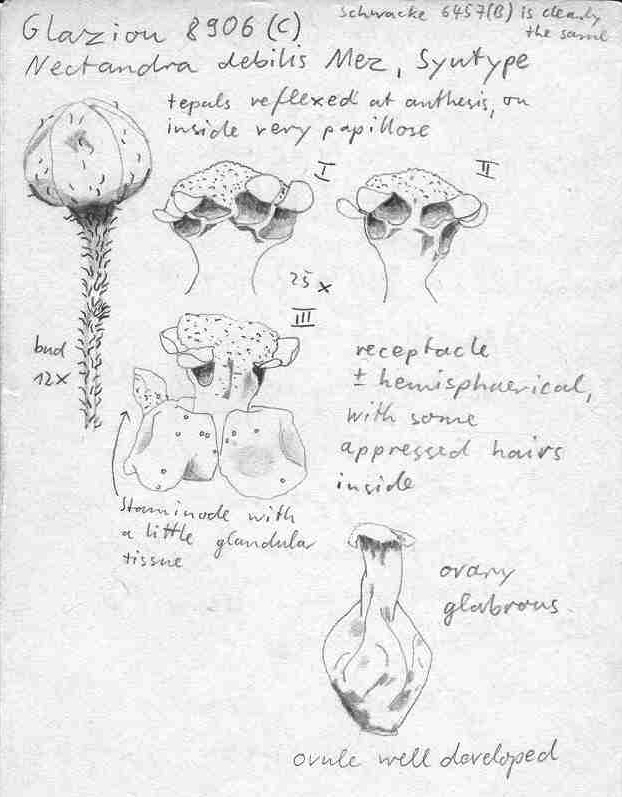 Glaziou 8906 (C)
Schwacke 6457(B) is clearly
the same
Nectandra debilis Mez, Syntype
tepals reflexed at anthesis, on
inside very papillose
I
II
25 x
III
bud
12x
receptacle
± hemisphaerical,
with some
appressed hairs
inside
Staminode with
a little glandular
tissue
ovary
glabrous
ovule well developed